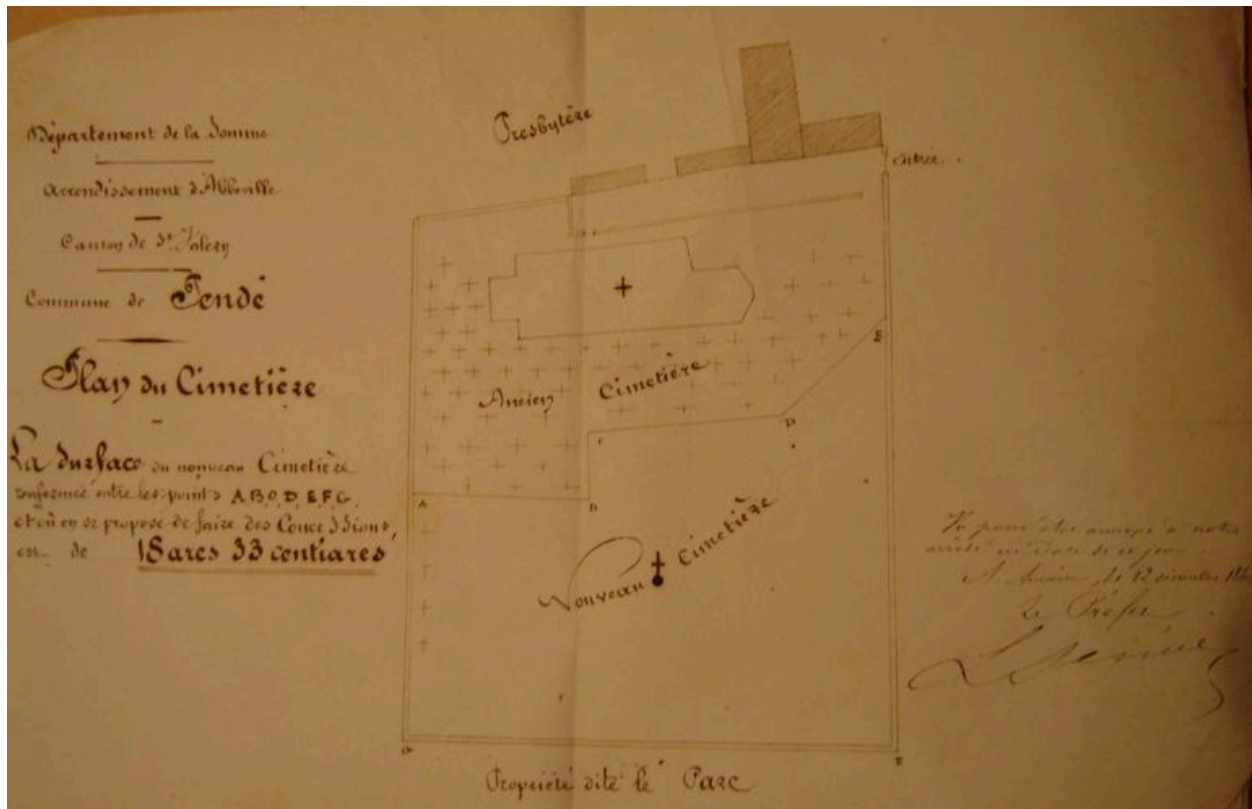 Département de la Somme
Arrondissement d'Abbeville
Canton de St. Valery
Commune de Pendé
Plan du Cimetière
La Surface du nouveau Cimetière
renfermée entre les points A.B.C.D.E.F.G.
et où on se propose de faire des Concessions,
est de 18 ares 33 centiares
Presbytère
Entrée.
Ancien Cimetière
E
D
C
A
B
Nouveau Cimetière
G
F
Propriété dite le Parc
Vu pour être annexé à notre
arrêté en date de ce jour
A Amiens, le 12 décembre
Le Préfet